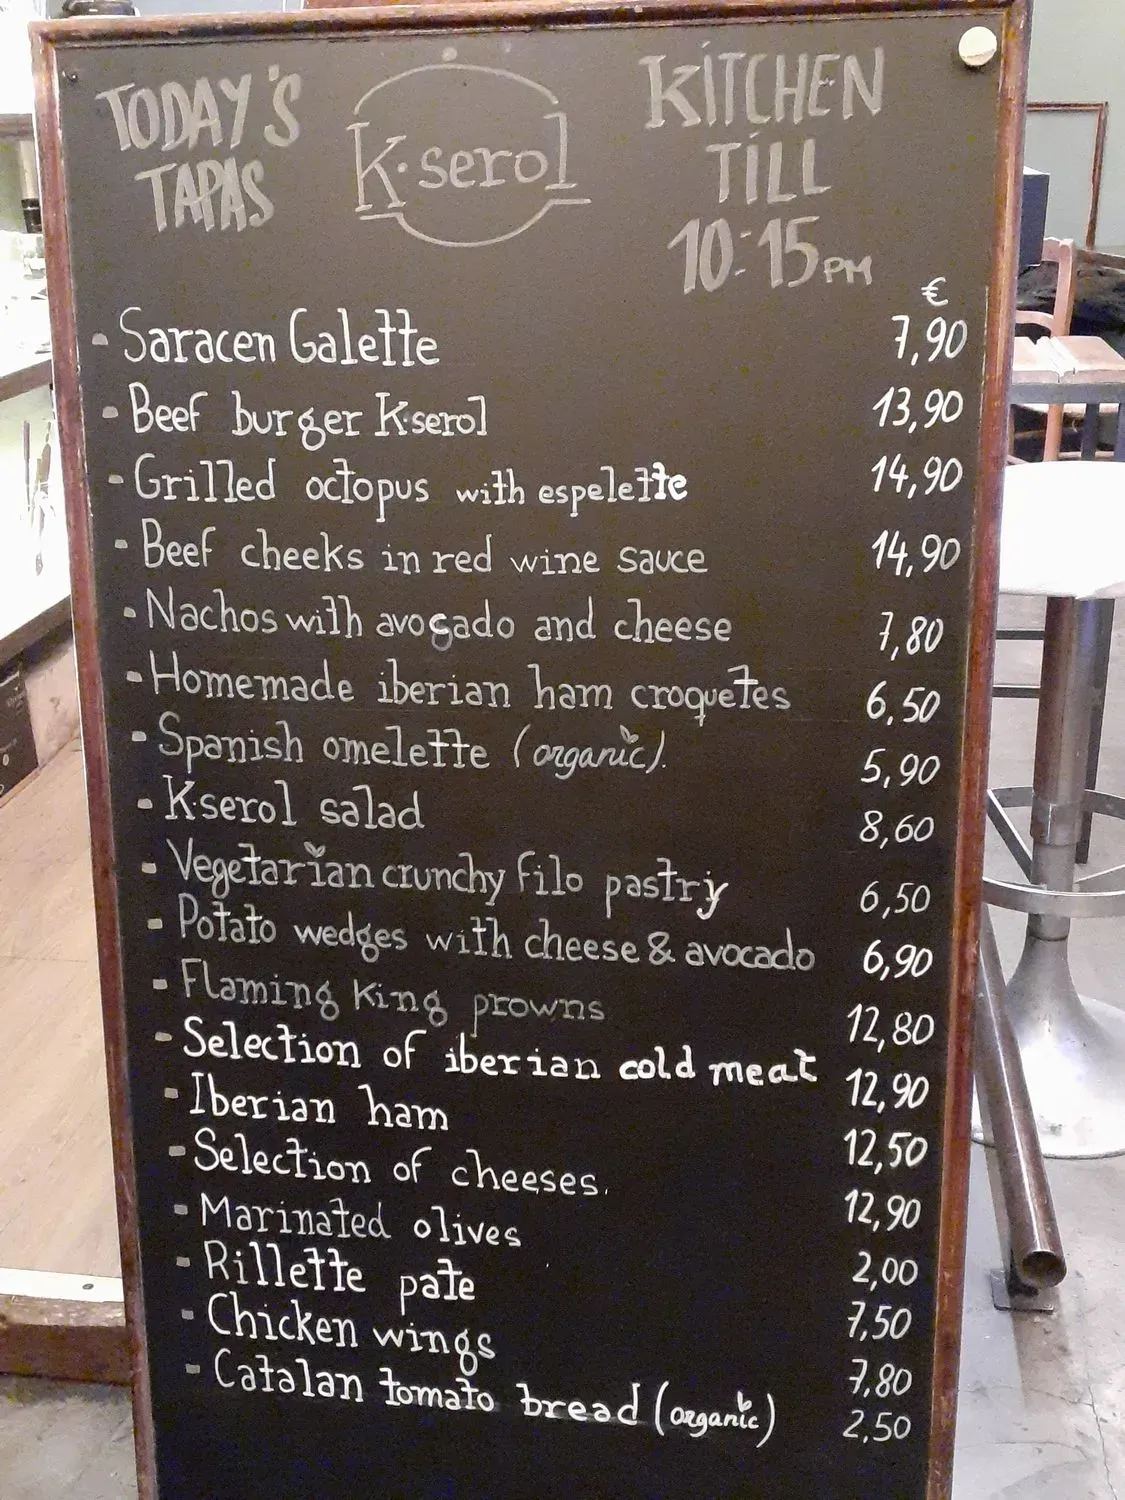 TODAY'S
TAPAS
K·serol
KİTCHEN
TİLL
10:15PM
€
- Saracen Galette 7,90
- Beef burger K·serol 13,90
- Grilled octopus with espelette 14,90
- Beef cheeks in red wine sauce 14,90
- Nachos with avogado and cheese 7,80
- Homemade iberian ham croquetes 6,50
- Spanish omelette (organic). 5,90
- K·serol salad 8,60
- Vegetarian crunchy filo pastry 6,50
- Potato wedges with cheese & avocado 6,90
- Flaming King prowns 12,80
- Selection of iberian cold meat 12,90
- Iberian ham 12,50
- Selection of cheeses. 12,90
- Marinated olives 2,00
- Rillette pate 7,50
- Chicken wings 7,80
- Catalan tomato bread (organic) 2,50